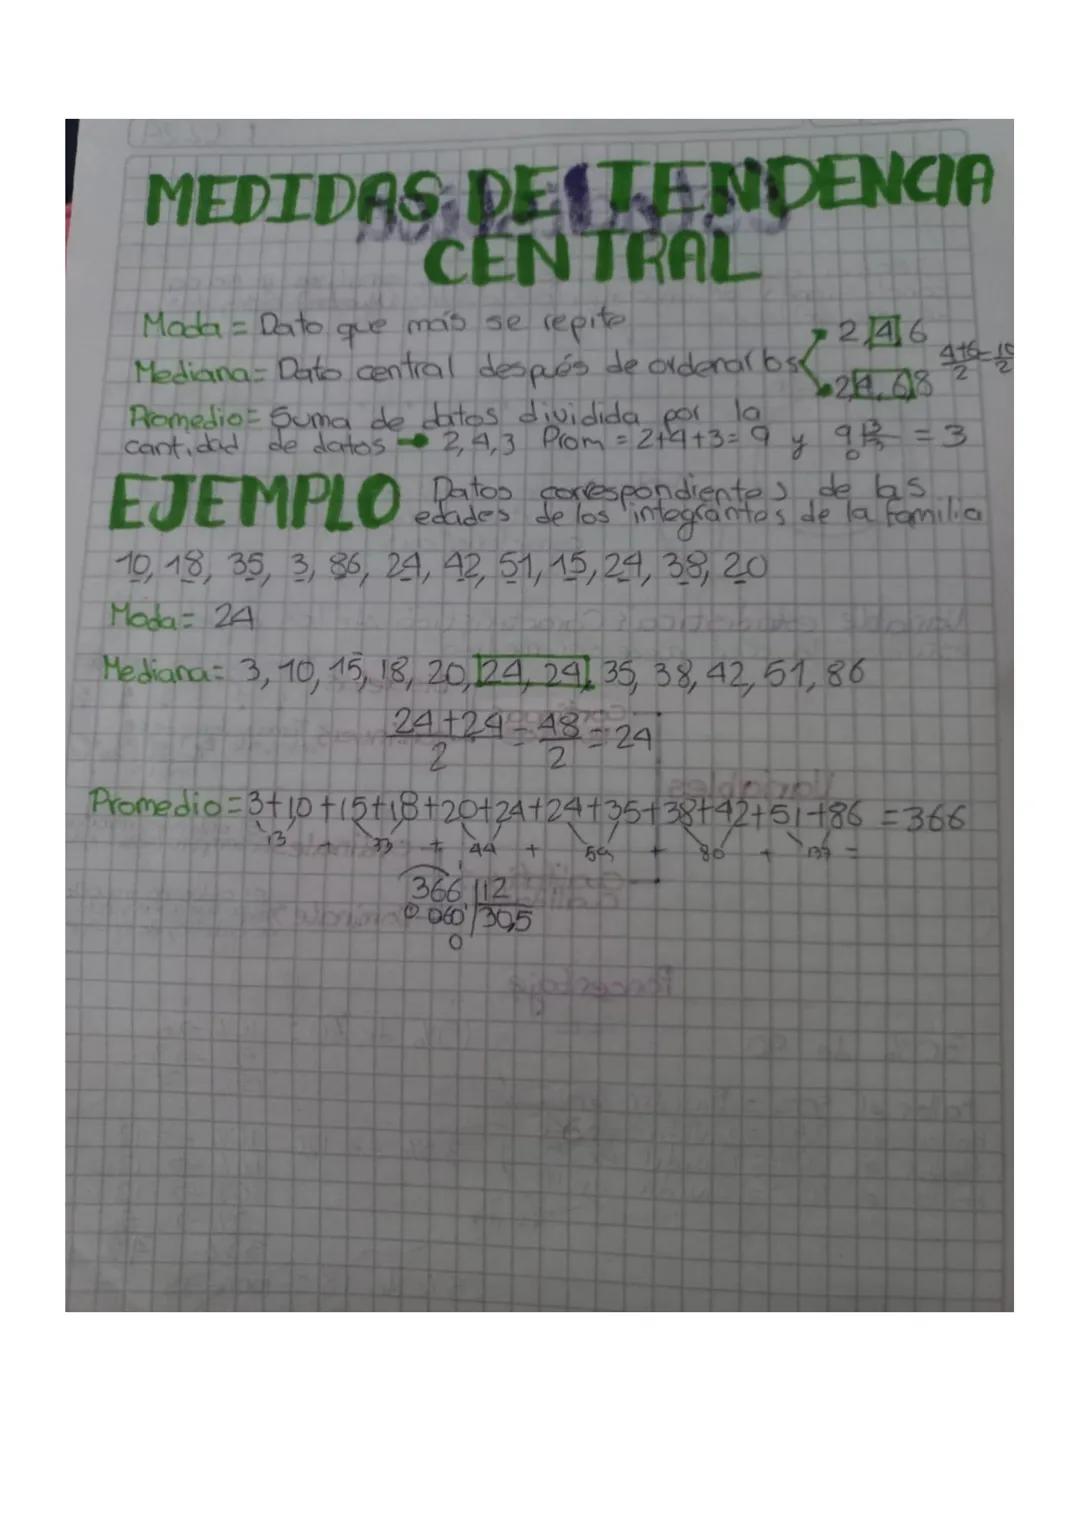 MEDIDAS DE TENDENCIA
CENTRAL
Moda = Dato que más se repite
Mediana = Dato central después de ordenarlos
2,4,6
2,4,6,8
4+6/2 = 10/2
Promedio = Suma de datos dividida por la
cantidad de datos → 2,4,3 Prom = 2+4+3=9 y 9 = 3
EJEMPLO Datos correspondientes de las
edades de los integrantes de la familia
10, 18, 35, 3, 86, 24, 42, 51, 15, 24, 38, 20
Moda = 24
Mediana = 3, 10, 15, 18, 20, 24, 24, 35, 38, 42, 51, 86
24+24/2 = 48/2 = 24
Promedio = 3+10+15+18+20+24+24+35+38+42+51+86 = 366
13 + 33 + 44 + 59 + 80 + 137 =
366 12
0 060 30,5
0